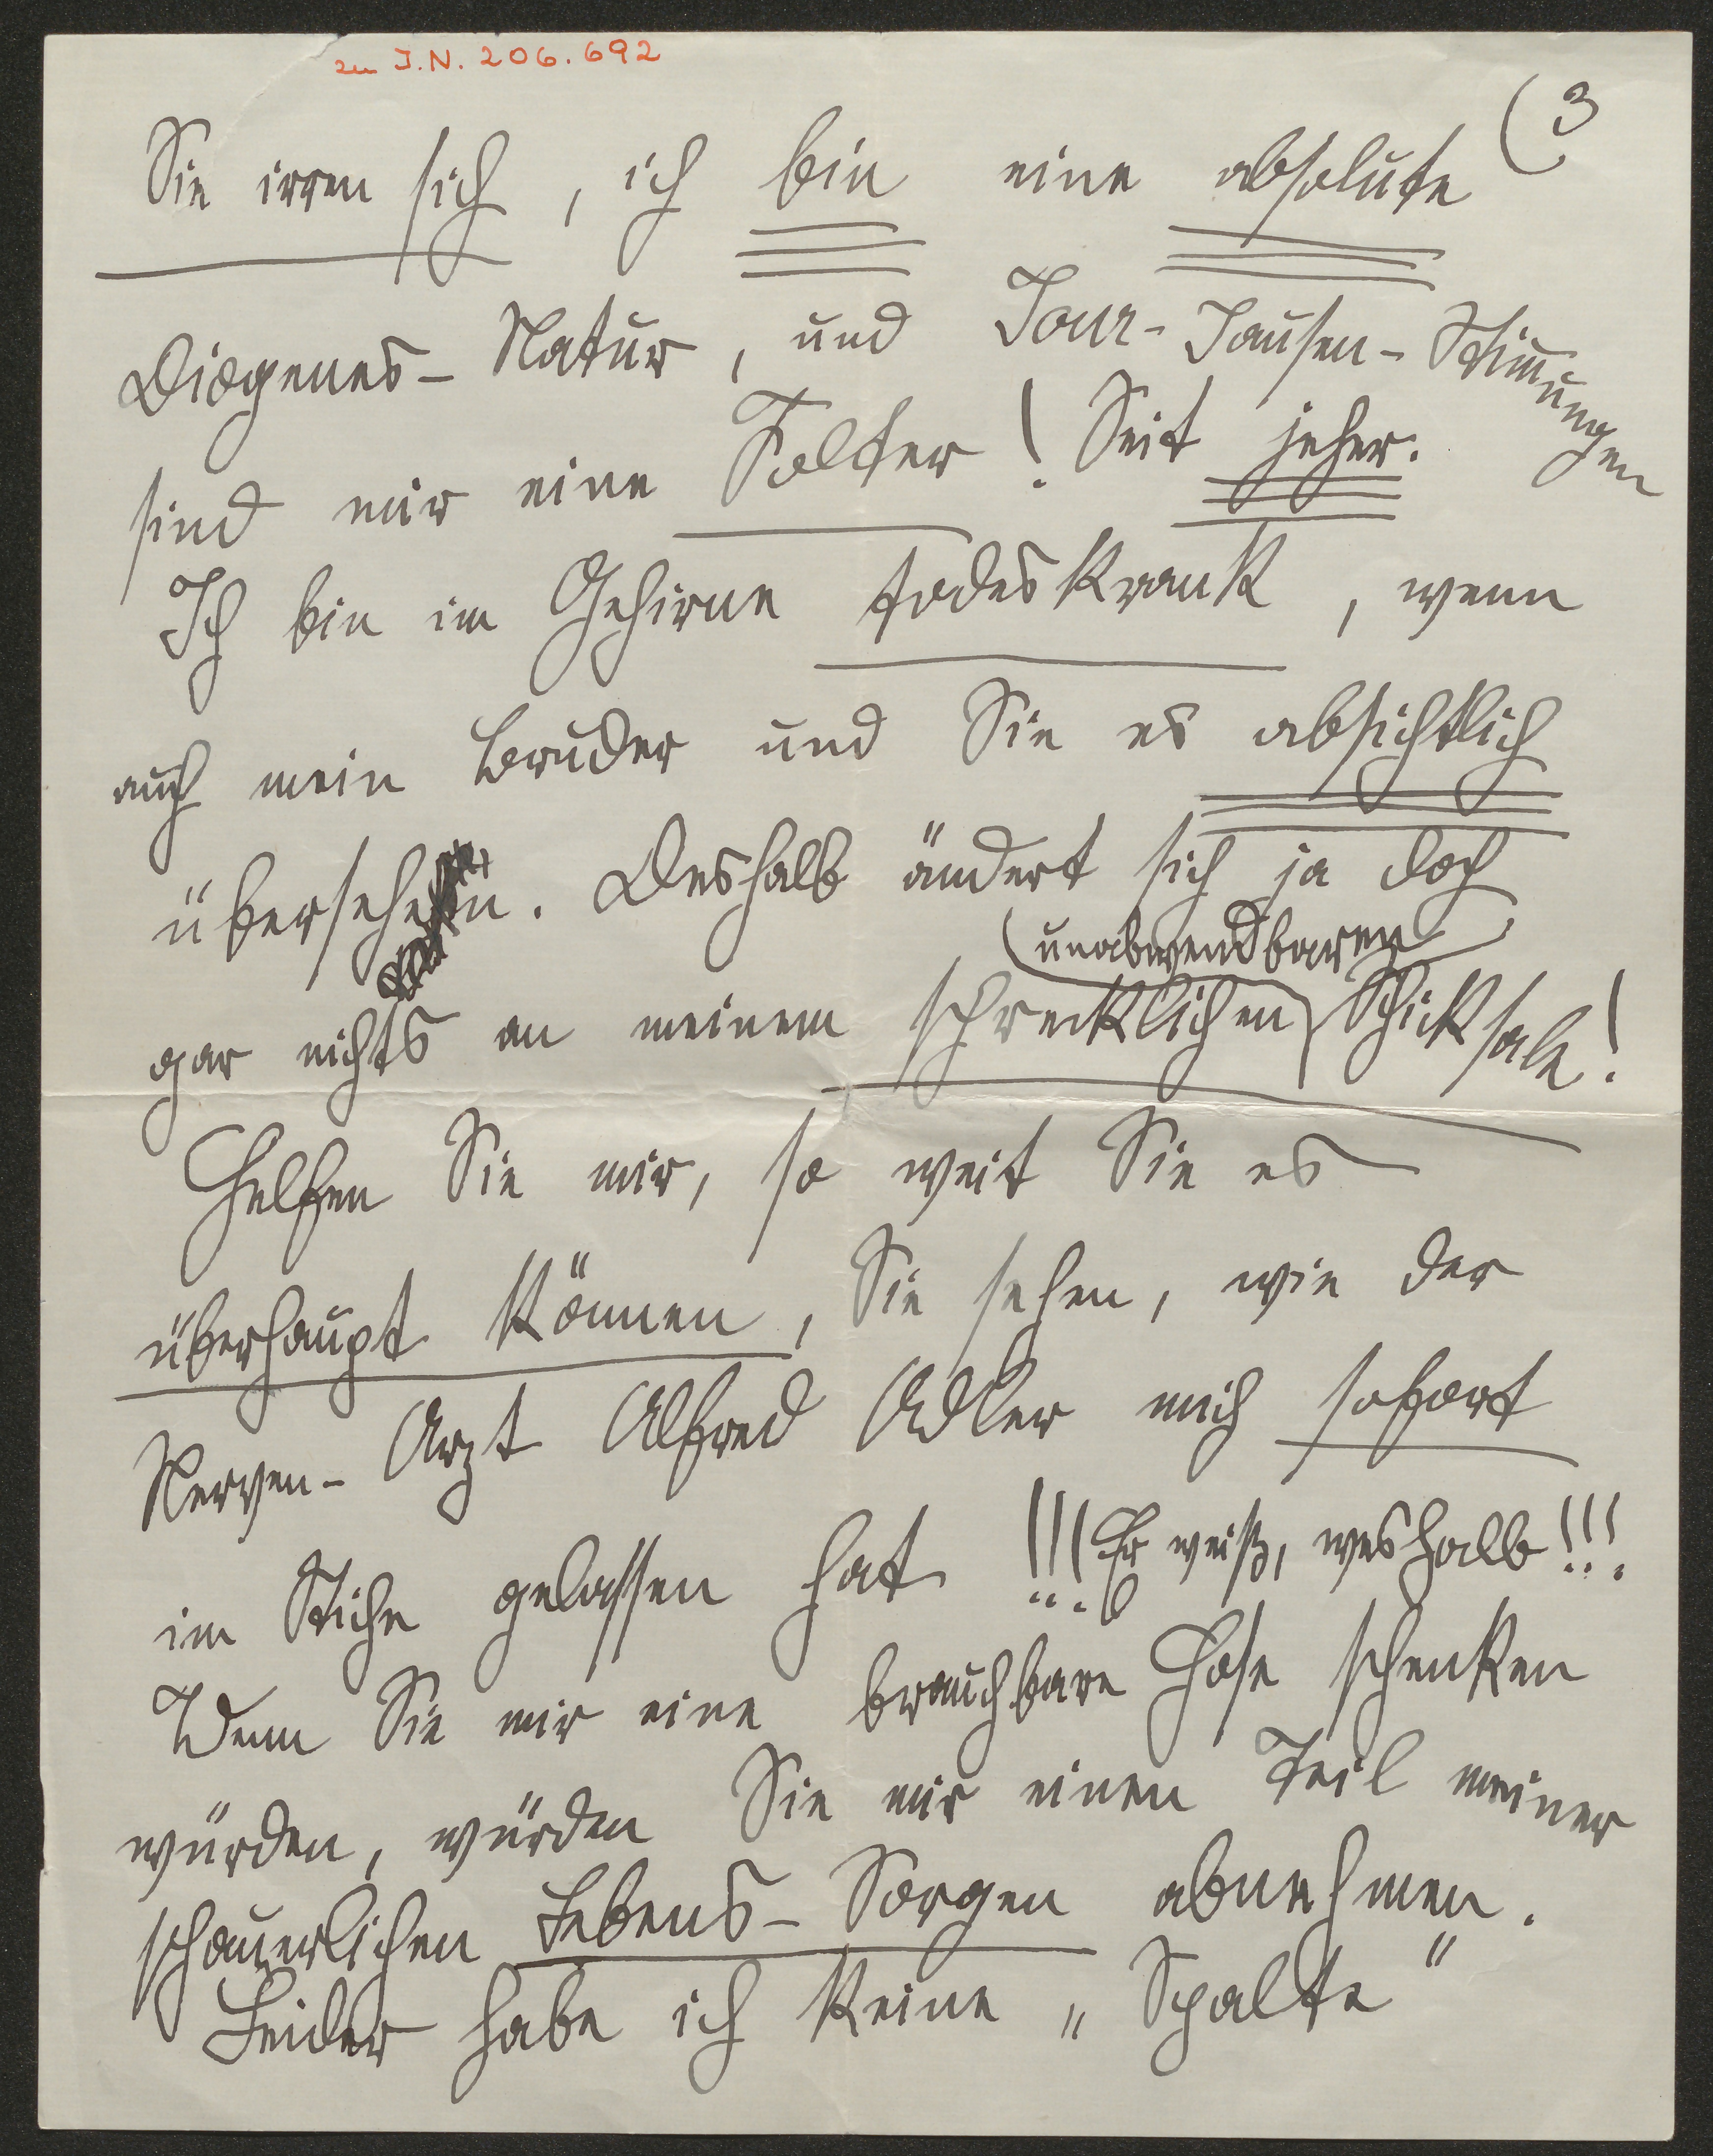 zu I.N. 206.692
(3
Sie irren sich, ich bin eine absolute
Diogenes-Natur, und Jour-Jausen-Stimmungen
sind mir eine Folter! Seit jeher.
Ich bin im Gehirne todeskrank, wenn
auch mein Bruder und Sie es absichtlich
übersehen. Deshalb ändert sich ja doch
unabwendbaren
gar nichts an meinem schrecklichen Schicksale!
Helfen Sie mir, so weit Sie es
überhaupt können, Sie sehen, wie der
Nerven-Arzt Alfred Adler mich sofort
im Stiche gelassen hat!!! Er weiß, weshalb!!!
Wenn Sie mir eine brauchbare Hose schenken
würden, würden Sie mir einen Teil meiner
schauerlichen Lebens-Sorgen abnehmen.
Leider habe ich keine „Spalte"